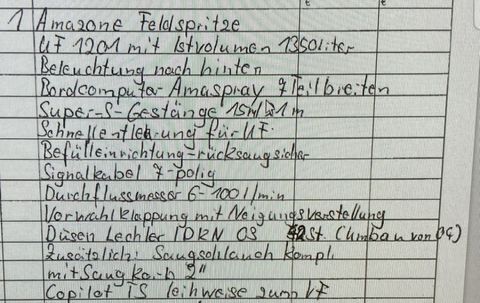 € €
1 Amazone Feldspritze
UF 1201 mit Istvolumen 1350Liter
Beleuchtung nach hinten
Bordcomputer Amaspray 7 Teilbreiten
Super-S-Gestänge 15m/21m
Schnellentleerung für UF
Befülleinrichtung-rücksaugsicher
Signalkabel 7-polig
Durchflussmesser 6-100l/min
Vorwahlklappung mit Neigungsverstellung
Düsen Lechler IDKN 03 St. (Umbau von 04)
Zusätzlich: Saugschlauch kompl.
mit Saugkorb 2"
Copilot TS leihweise zum UF